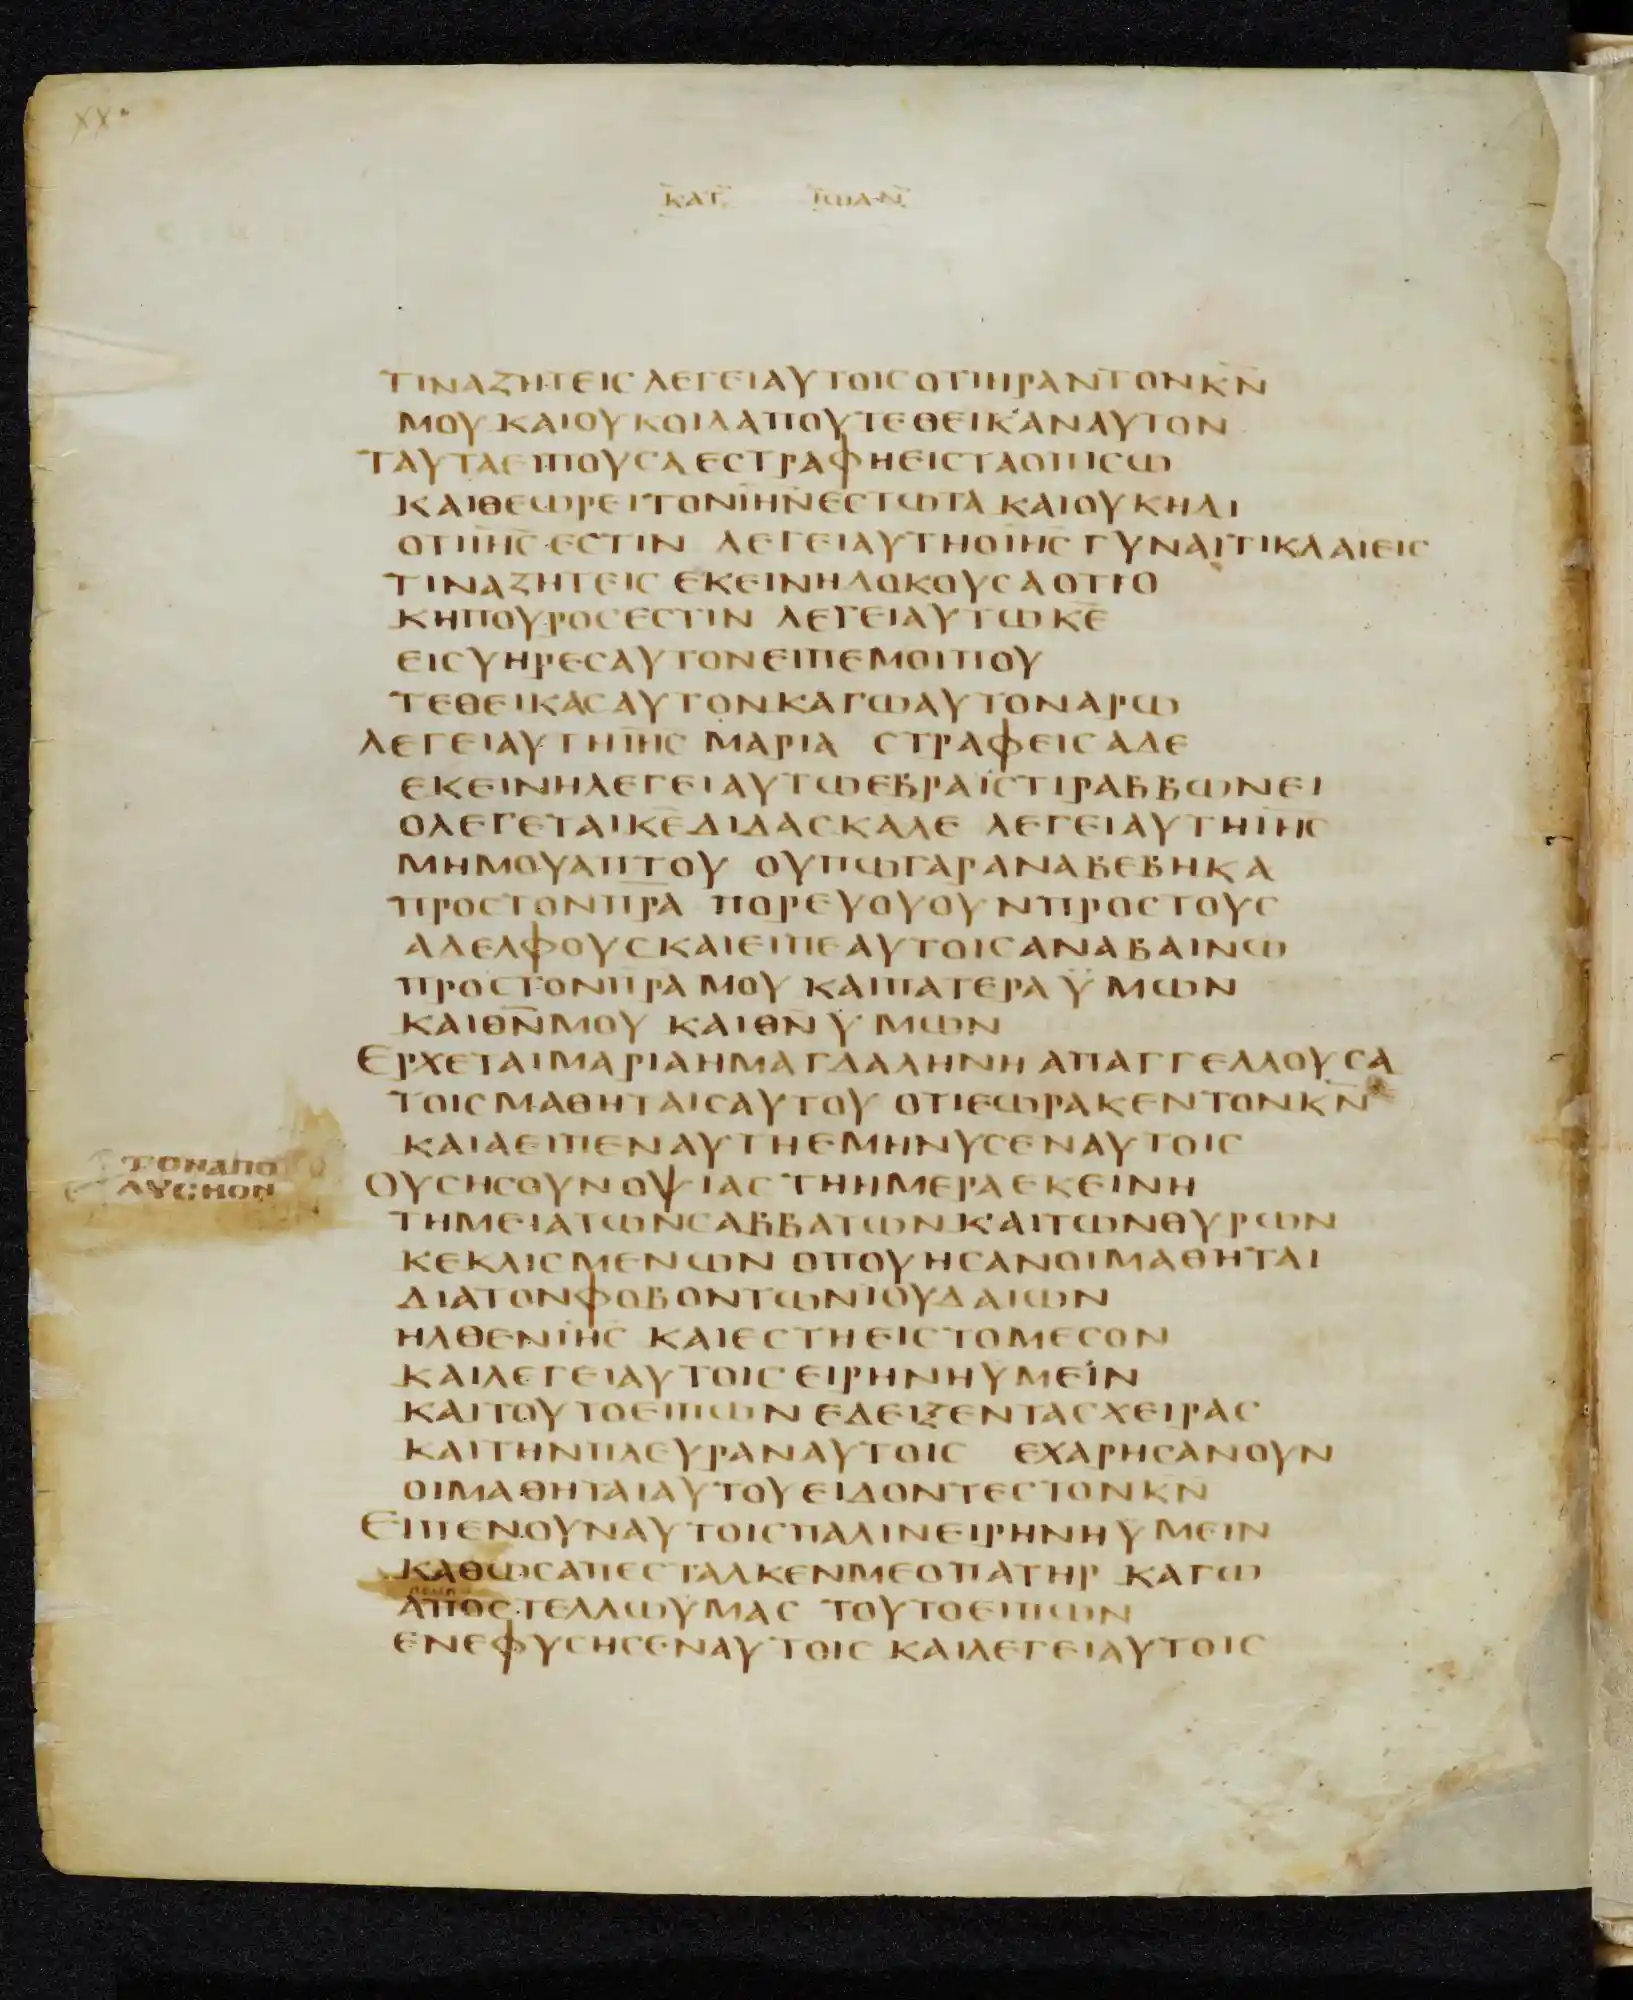 ΚΑΤ ΙΩΑΝ
ΤΙΝΑΖΗΤΕΙϹ ΛΕΓΕΙΑΥΤΟΙϹΟΤΙΗΡΑΝΤΟΝΚ̅Ν̅
ΜΟΥ ΚΑΙΟΥΚΟΙΔΑΠΟΥΤΕΘΕΙΚΑΝΑΥΤΟΝ
ΤΑΥΤΑΕΙΠΟΥϹΑ ΕϹΤΡΑΦΗΕΙϹΤΑΟΠΙϹΩ
ΚΑΙΘΕΩΡΕΙΤΟΝΙ̅Η̅Ν̅ΕϹΤΩΤΑ ΚΑΙΟΥΚΗΔΙ
ΟΤΙΙ̅Η̅Ϲ̅ΕϹΤΙΝ ΛΕΓΕΙΑΥΤΗΟΙ̅Η̅Ϲ̅ ΓΥΝΑΙΤΙΚΛΑΙΕΙϹ
ΤΙΝΑΖΗΤΕΙϹ ΕΚΕΙΝΗΔΟΚΟΥϹΑΟΤΙΟ
ΚΗΠΟΥΡΟϹΕϹΤΙΝ ΛΕΓΕΙΑΥΤΩΚ̅Ε̅
ΕΙϹΥΗΡΕϹΑΥΤΟΝΕΙΠΕΜΟΙΠΟΥ
ΤΕΘΕΙΚΑϹΑΥΤΟΝΚΑΓΩΑΥΤΟΝΑΡΩ
ΛΕΓΕΙΑΥΤΗΙ̅Η̅Ϲ̅ ΜΑΡΙΑ ϹΤΡΑΦΕΙϹΑΔΕ
ΕΚΕΙΝΗΛΕΓΕΙΑΥΤΩΕΒΡΑΪϹΤΙΡΑΒΒΩΝΕΙ
ΟΛΕΓΕΤΑΙΚ̅Ε̅ΔΙΔΑϹΚΑΛΕ ΛΕΓΕΙΑΥΤΗΙ̅Η̅Ϲ̅
ΜΗΜΟΥΑΠΤΟΥ ΟΥΠΩΓΑΡΑΝΑΒΕΒΗΚΑ
ΠΡΟϹΤΟΝΠ̅Ρ̅Α̅ ΠΟΡΕΥΟΥΟΥΝΠΡΟϹΤΟΥϹ
ΑΔΕΛΦΟΥϹΚΑΙΕΙΠΕΑΥΤΟΙϹΑΝΑΒΑΙΝΩ
ΠΡΟϹΤΟΝΠ̅Ρ̅Α̅ΜΟΥ ΚΑΙΠΑΤΕΡΑΫΜΩΝ
ΚΑΙΘ̅Ν̅ΜΟΥ ΚΑΙΘ̅Ν̅ΥΜΩΝ
ΕΡΧΕΤΑΙΜΑΡΙΑΗΜΑΓΔΑΛΗΝΗ ΑΠΑΓΓΕΛΛΟΥϹΑ
ΤΟΙϹΜΑΘΗΤΑΙϹΑΥΤΟΥ ΟΤΙΕΩΡΑΚΕΝΤΟΝΚ̅Ν̅
ΚΑΙΑΕΙΠΕΝΑΥΤΗΕΜΗΝΥϹΕΝΑΥΤΟΙϹ
ΤΟΝΑΠΟ
ΛΥϹΗΟΝ
ΟΥϹΗϹΟΥΝΟΨΙΑϹ ΤΗΗΜΕΡΑΕΚΕΙΝΗ
ΤΗΜΕΙΑΤΩΝϹΑΒΒΑΤΩΝΚΑΙΤΩΝΘΥΡΩΝ
ΚΕΚΛΙϹΜΕΝΩΝ ΟΠΟΥΗϹΑΝΟΙΜΑΘΗΤΑΙ
ΔΙΑΤΟΝΦΟΒΟΝΤΩΝΙΟΥΔΑΙΩΝ
ΗΛΘΕΝΙ̅Η̅Ϲ̅ ΚΑΙΕϹΤΗΕΙϹΤΟΜΕϹΟΝ
ΚΑΙΛΕΓΕΙΑΥΤΟΙϹΕΙΡΗΝΗΥΜΕΙΝ
ΚΑΙΤΟΥΤΟΕΙΠΩΝΕΔΕΙΞΕΝΤΑϹΧΕΙΡΑϹ
ΚΑΙΤΗΝΠΛΕΥΡΑΝΑΥΤΟΙϹ ΕΧΑΡΗϹΑΝΟΥΝ
ΟΙΜΑΘΗΤΑΙΑΥΤΟΥΕΙΔΟΝΤΕϹΤΟΝΚ̅Ν̅
ΕΙΠΕΝΟΥΝΑΥΤΟΙϹΠΑΛΙΝΕΙΡΗΝΗΥΜΕΙΝ
ΚΑΘΩϹΑΠΕϹΤΑΛΚΕΝΜΕΟΠΑΤΗΡ ΚΑΓΩ
ΑΠΟϹΤΕΛΛΩΥΜΑϹ ΤΟΥΤΟΕΙΠΩΝ
ΕΝΕΦΥϹΗϹΕΝΑΥΤΟΙϹ ΚΑΙΛΕΓΕΙΑΥΤΟΙϹ